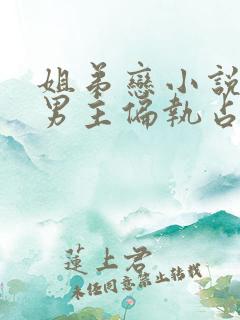 姐弟戀小說
男主偏執占
蓮上君
未経同意禁止轉載